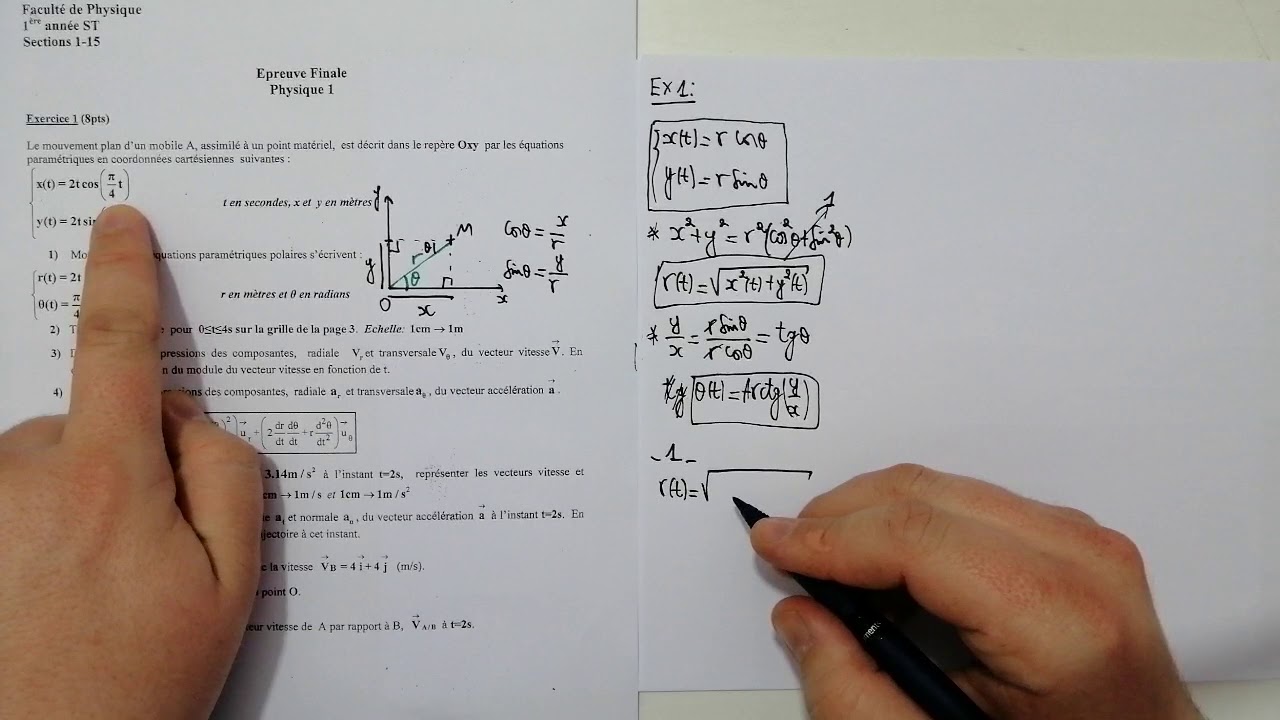 Faculté de Physique
1ère année ST
Sections 1-15
Epreuve Finale
Physique 1
Exercice 1 (8pts)
Le mouvement plan d'un mobile A, assimilé à un point matériel, est décrit dans le repère Oxy par les équations
paramétriques en coordonnées cartésiennes suivantes :
x(t) = 2t cos(π/4 t)
y(t) = 2t sin
t en secondes, x et y en mètres
1) équations paramétriques polaires s'écrivent :
r(t) = 2t
θ(t) = π/4
r en mètres et θ en radians
2) pour 0≤t≤4s sur la grille de la page 3. Echelle: 1cm → 1m
3) des composantes, radiale Vr et transversale Vθ, du vecteur vitesse V⃗. En
du module du vecteur vitesse en fonction de t.
4) des composantes, radiale ar et transversale aθ, du vecteur accélération a⃗.
)²) u⃗r + (2 dr/dt dθ/dt + r d²θ/dt²) u⃗θ
3.14m/s² à l'instant t=2s, représenter les vecteurs vitesse et
→ 1m/s et 1cm → 1m/s²
et normale an, du vecteur accélération a⃗ à l'instant t=2s. En
à cet instant.
la vitesse V⃗B = 4i⃗ + 4j⃗ (m/s).
point O.
vitesse de A par rapport à B, V⃗A/B à t=2s.
y
M
r
θ
y
O
x
x
cosθ = x/r
sinθ = y/r
EX 1:
x(t) = r cosθ
y(t) = r sinθ
1
* x² + y² = r²(cos²θ + sin²θ)
r(t) = √x²(t) + y²(t)
* y/x = r sinθ / r cosθ = tgθ
θ(t) = Arctg(y/x)
-1-
r(t) = √